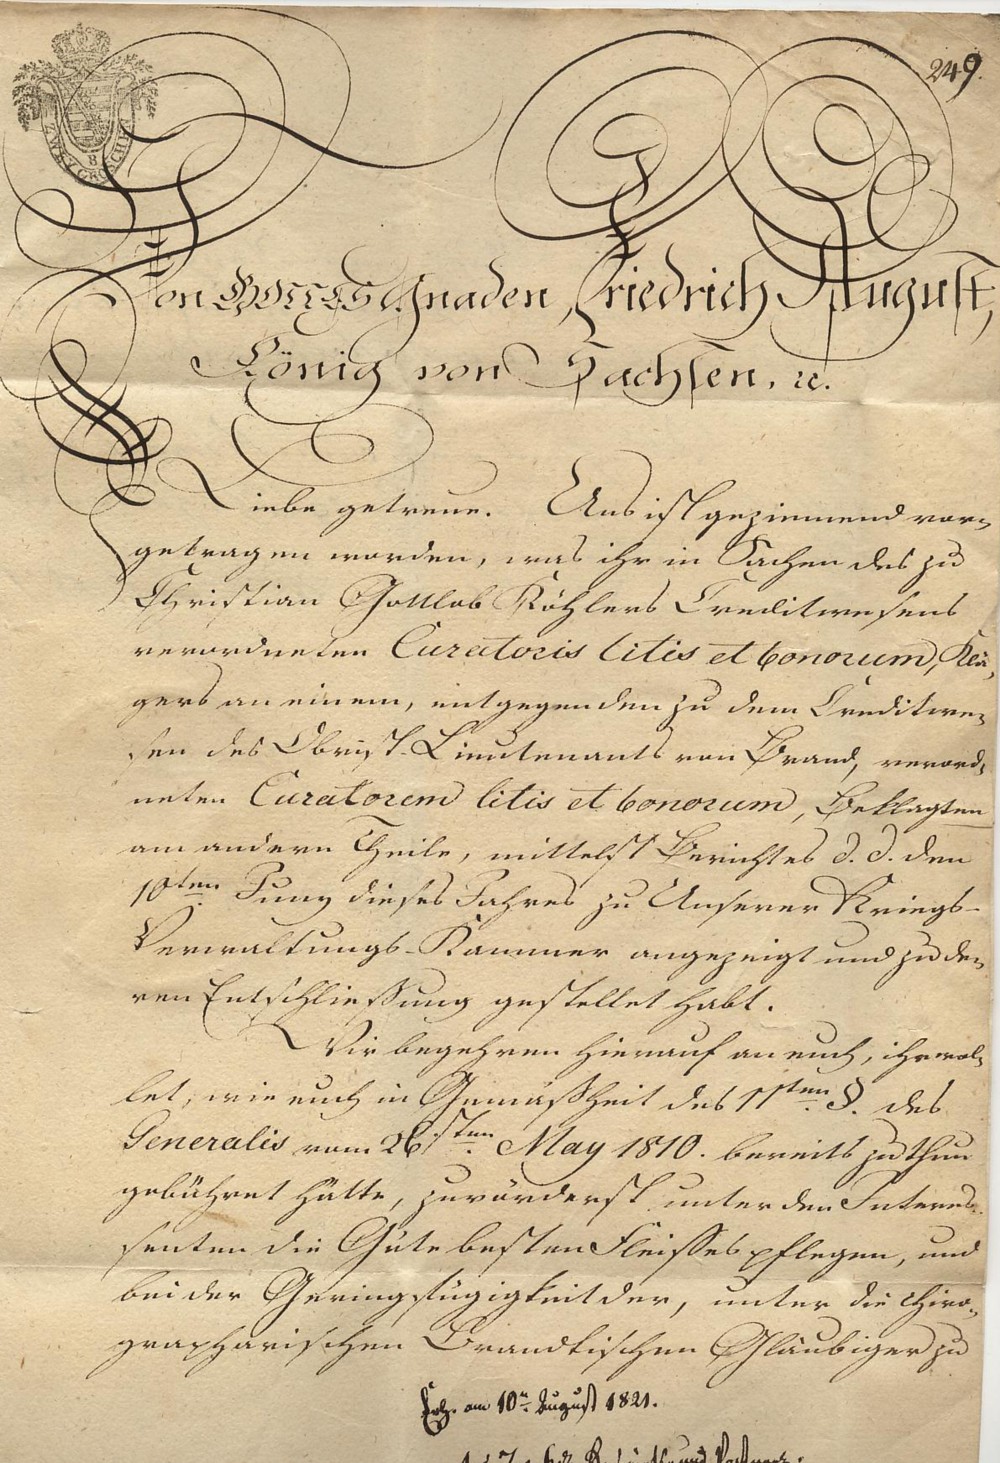 249.
ZWEY GROSCHEN
B
Von GOTTES Gnaden, Friedrich August,
König von Sachsen, ꝛc.
Liebe getreue. Uns ist geziemend vor-
getragen worden, was ihr in Sachen des zu
Christian Gottlob Köhlers Creditwesens
verordneten Curatoris litis et bonorum, Klä-
gers an einem, entgegen den zu dem Creditwe-
sen des Obrist-Lieutenants von Brand, verord-
neten Curatorem litis et bonorum, Beklagten
am andern Theile, mittelst Berichtes d. d. den
10ten Juny dieses Jahres zu Unserer Kriegs-
Verwaltungs-Kammer angezeigt und zu de-
ren Entschließung gestellet habt.
Wir begehren hierauf an euch, ihr wol-
let, wie euch in Gemäßheit des 11ten §. des
Generalis vom 26sten May 1810. bereits zu thun
gebühret hätte, zuvörderst unter den Interes-
senten die Güte besten Fleisses pflegen, und
bei der Geringfügigkeit der, unter die chiro-
grapharischen Brandtischen Gläubiger zu
am 10n August 1821.